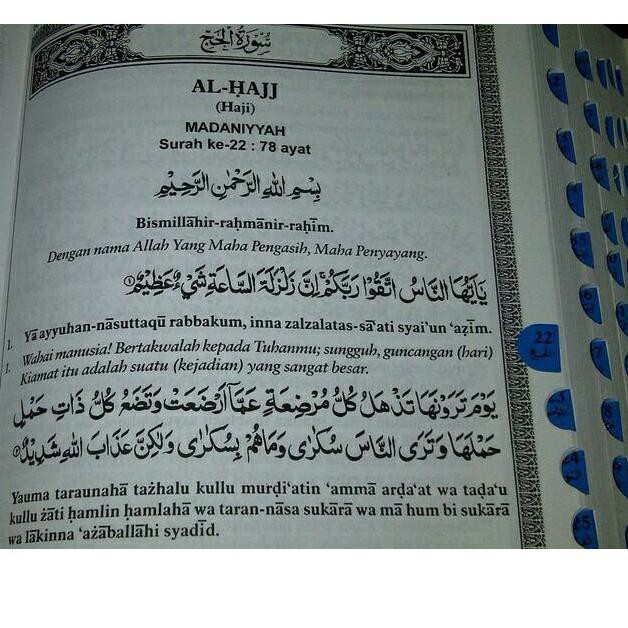 سُورَةُ الْحَجّ
AL-ḤAJJ
(Haji)
MADANIYYAH
Surah ke-22 : 78 ayat
بِسْمِ اللهِ الرَّحْمٰنِ الرَّحِيْمِ
Bismillāhir-raḥmānir-raḥīm.
Dengan nama Allah Yang Maha Pengasih, Maha Penyayang.
يٰٓاَيُّهَا النَّاسُ اتَّقُوْا رَبَّكُمْۚ اِنَّ زَلْزَلَةَ السَّاعَةِ شَيْءٌ عَظِيْمٌ ١
1. Yā ayyuhan-nāsuttaqū rabbakum, inna zalzalatas-sā'ati syai'un 'aẓīm.
1. Wahai manusia! Bertakwalah kepada Tuhanmu; sungguh, guncangan (hari)
Kiamat itu adalah suatu (kejadian) yang sangat besar.
يَوْمَ تَرَوْنَهَا تَذْهَلُ كُلُّ مُرْضِعَةٍ عَمَّآ اَرْضَعَتْ وَتَضَعُ كُلُّ ذَاتِ حَمْلٍ
حَمْلَهَا وَتَرَى النَّاسَ سُكٰرٰى وَمَا هُمْ بِسُكٰرٰى وَلٰكِنَّ عَذَابَ اللهِ شَدِيْدٌ ٢
Yauma taraunahā tażhalu kullu murḍi'atin 'ammā arḍa'at wa taḍa'u
kullu żāti ḥamlin ḥamlahā wa taran-nāsa sukārā wa mā hum bi sukārā
wa lākinna 'ażāballāhi syadīd.
22
الحج
24
25